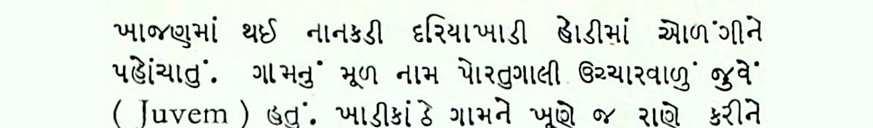 ખાજણમાં થઈ નાનકડી દરિયાખાડી હોડીમાં ઓળંગીને
પહોંચાતું. ગામનું મૂળ નામ પોરતુગાલી ઉચ્ચારવાળું જુવેં
( Juvem ) હતું. ખાડીકાંઠે ગામને ખૂણે જ રાણે કરીને